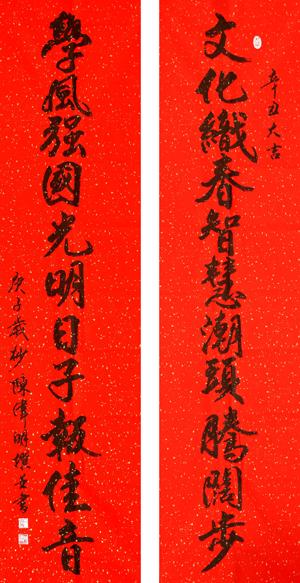 辛丑大吉
文化織春智慧潮頭騰闊步
學風强國光明日子報佳音
庚子歲杪陳偉明撰並書